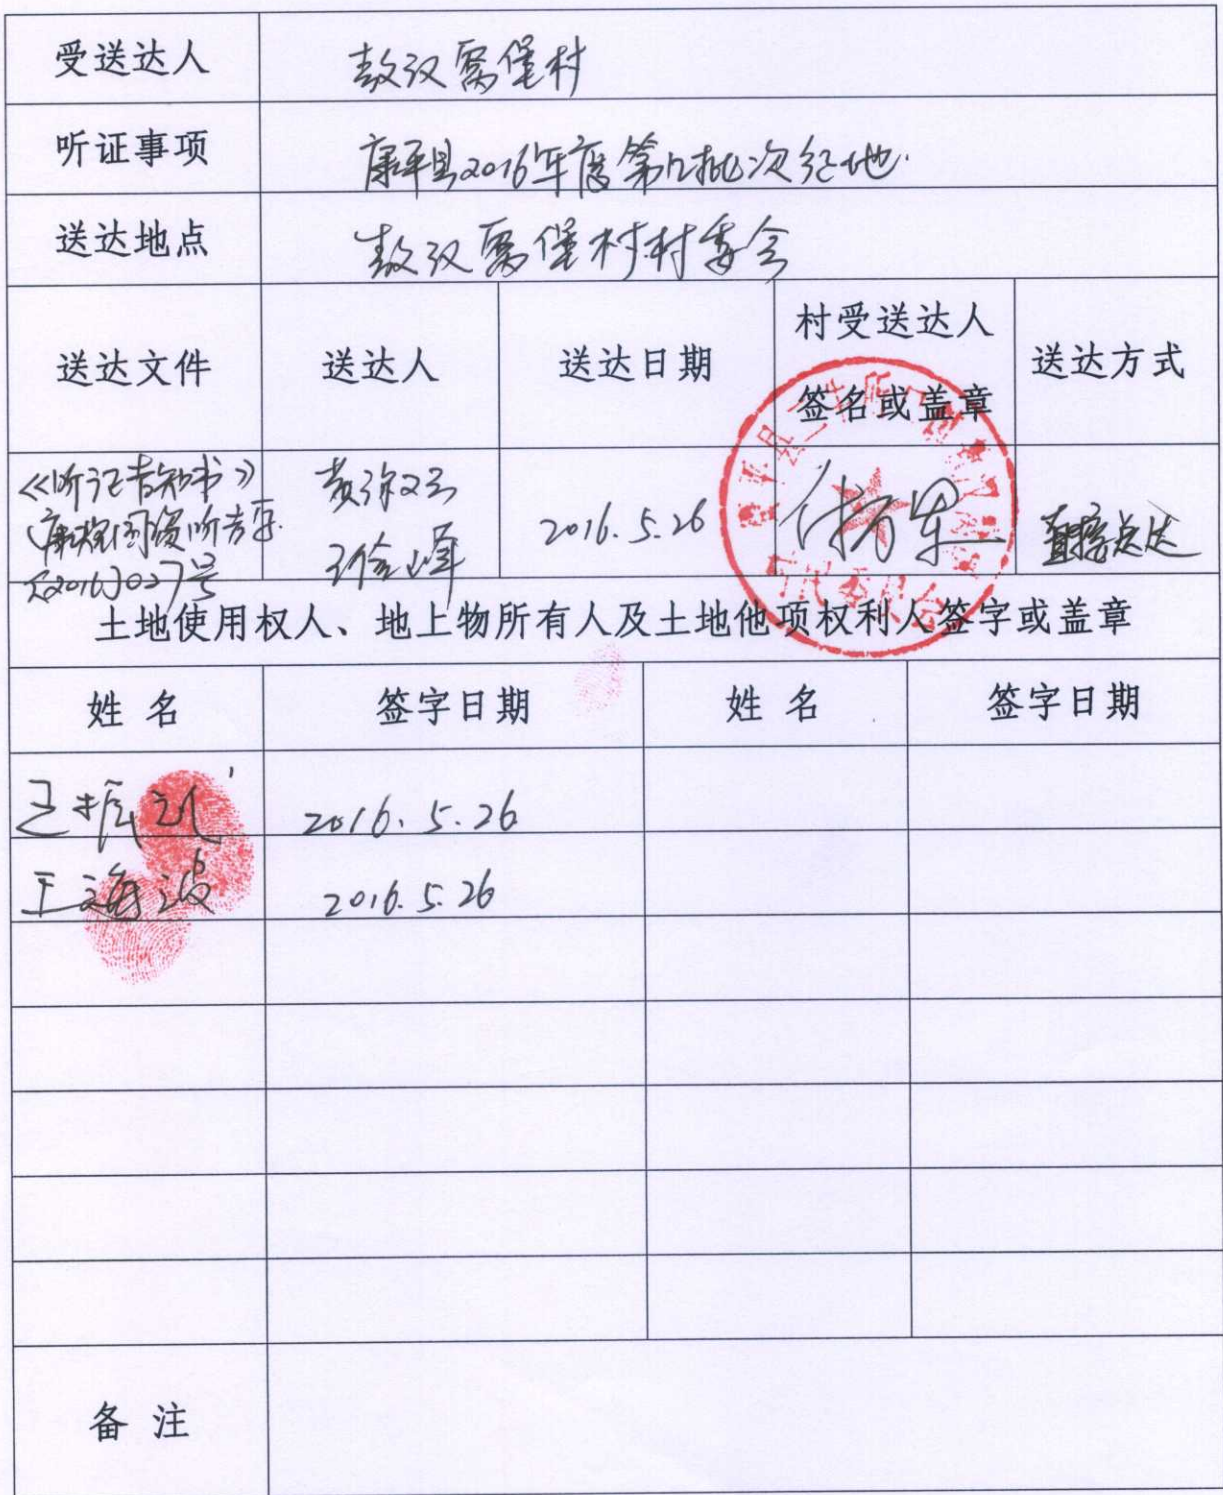 受送达人 敖汉窝堡村
听证事项 康平县2016年度第 批次征地.
送达地点 敖汉窝堡村村委会
送达文件 送达人 送达日期 村受送达人 签名或盖章 送达方式
《听证告知书》
康 国资听告字
[2016]027号
2016.5.26
直接送达
土地使用权人、地上物所有人及土地他项权利人签字或盖章
姓 名 签字日期 姓 名 签字日期
王振 2016.5.26
王海波 2016.5.26
备 注